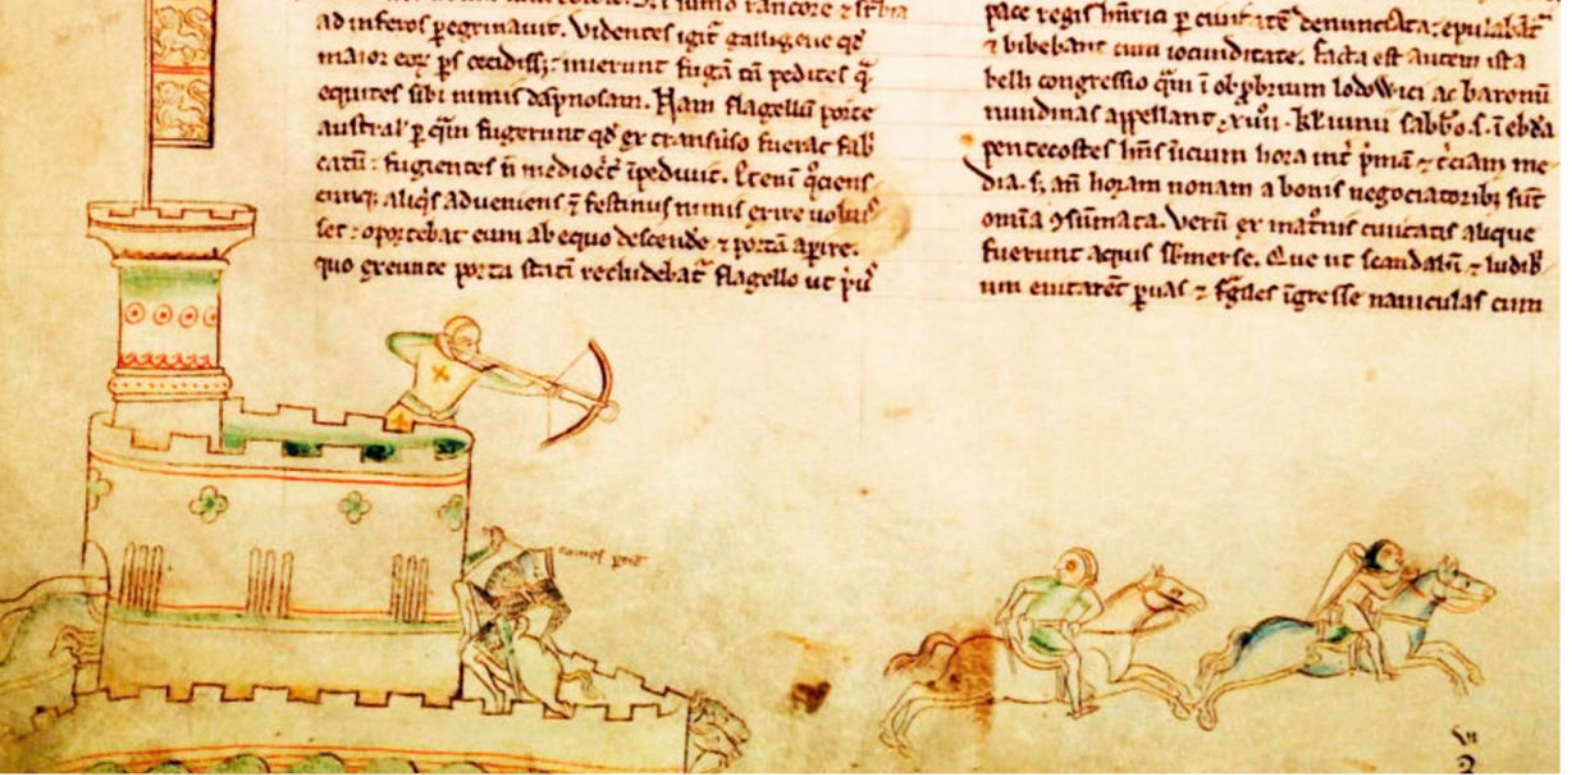 ad inferos pegrinauit. Videntes igit᷑ galligene qď
maior eoꝝ ps cecidiss;: inierunt fugã tã pedites q̃
equites sibi nimis dãpnosam. Nam flagellũ porte
austral' ꝑ quã fugerunt qď ex transũso fuerat fab
catũ: fugientes ñ mediocͥt ĩpediuit. Etenĩ qͦciens
cumq; aliqͥs adueniens ⁊ festinus nimis exire uoluis
set: oportebat eum ab equo descendẽ ⁊ portã apire.
quo exeunte porta statĩ recludebat᷑ flagello ut pͥus
comes ꝑtic'
pace regis hñrici ꝑ ciuitatẽ denunciata: epulabãt᷑
⁊ bibebant cum iocunditate. Facta est autem ista
belli congressio quã ĩ obꝓbrium lodowici ac baronũ
nundinas appellant .xiiiº. kł iunii sabb̃o .s. ĩ ebďa
pentecostes hñs inicium hora int̾ pͥmã ⁊ t̾ciam me
dia. s; añ horam nonam a bonis negociatorib; sũt
omĩa ꝯsũmata. Verũ ex matͦnis ciuitatis alique
fuerunt aquis sbmerse. Que ut scandalũ ⁊ ludibͥ
um euitarẽt ꝑuas ⁊ fͣgiles ĩgresse nauiculas cum